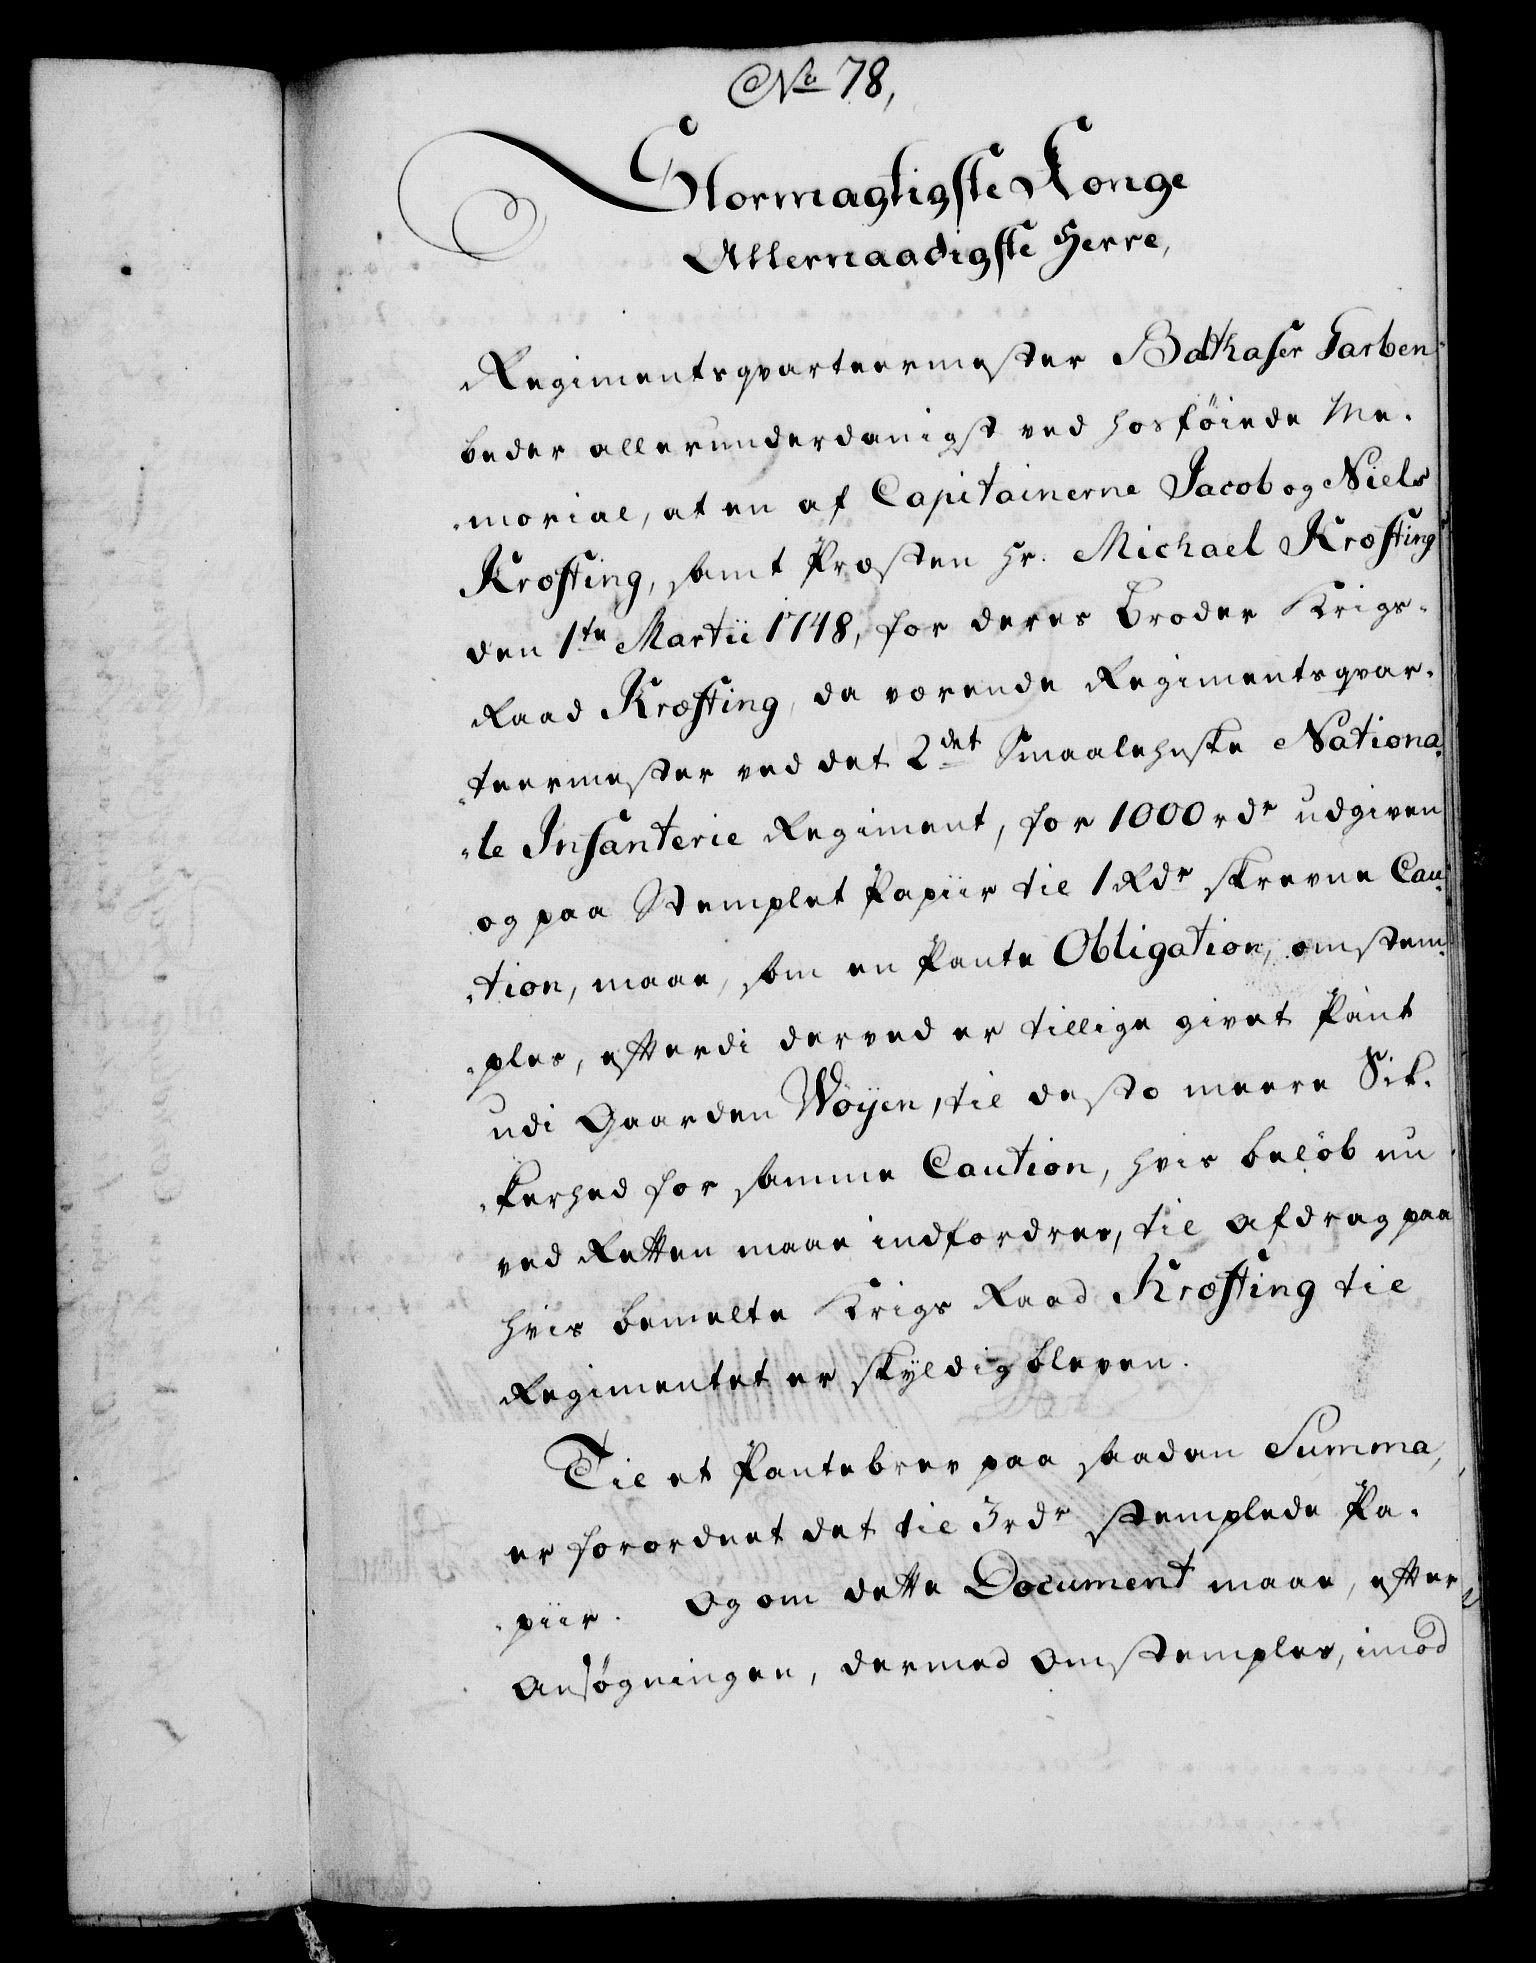 No 78,
Stormagtigste Konge
Allernaadigste Herre,
Regimentsqvarteermester Balthaser Farben
beder allerunderdanigst ved hosföiede Me-
-morial, at en af Capitainerne Jacob og Niels
Kræfting, samt Præsten Hr. Michael Kræfting
den 1te Martii 1748, for deres Broder Krigs-
Raad Kræfting, da værende Regimentsqvar-
-teermester ved det 2det Smaalehnske Nationa-
-le Infanterie Regiment, for 1000 rdr udgiven
og paa Stemplet Papiir til 1 Rdr skrevne Cau-
-tion, maae, som en Pante Obligation, omstem-
-ples, efterdi derved er tillige givet Pant
udi Gaarden Wöyen, til desto meere Sik-
-kerhed for samme Caution, hvis belöb nu
ved Retten maae indfordres, til afdrag paa
hvis bemelte Krigs Raad Kræfting til
Regimentet er skyldig bleven.
Til et Pantebrev paa saadan Summa,
er forordnet det til 3 rdr stemplede Pa-
-piir. Og om dette Document maae, efter
Ansögningen, dermed omstemples, imod